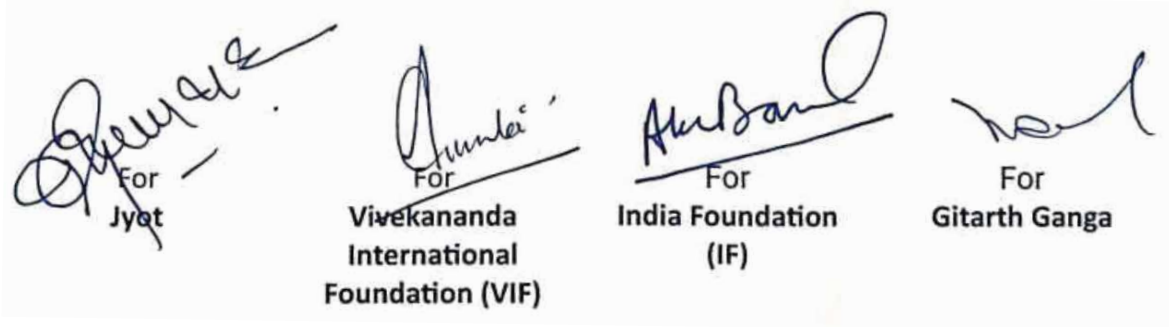 For
Jyot
For
Vivekananda
International
Foundation (VIF)
For
India Foundation
(IF)
For
Gitarth Ganga